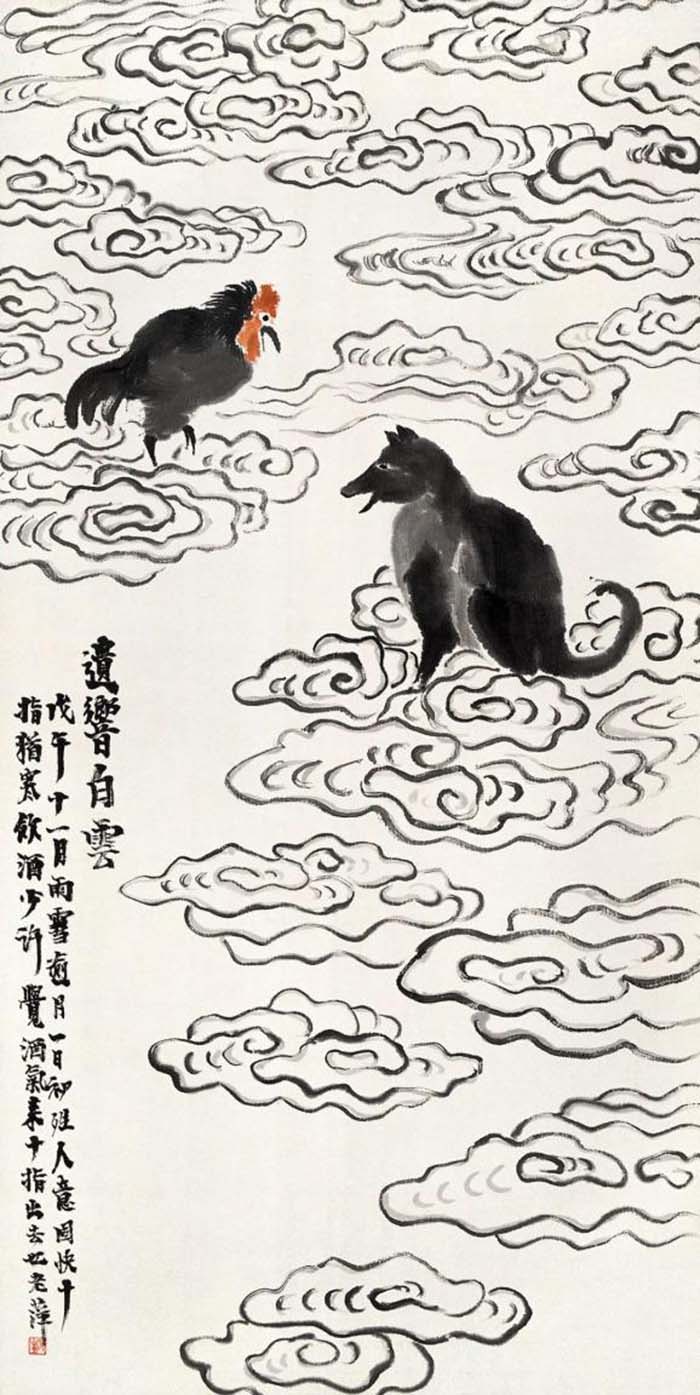 遺響白雲
戊午十一月雨雪逾月一日初人意固快十
指猶寒飲酒少許覺酒氣来十指出去也老萍